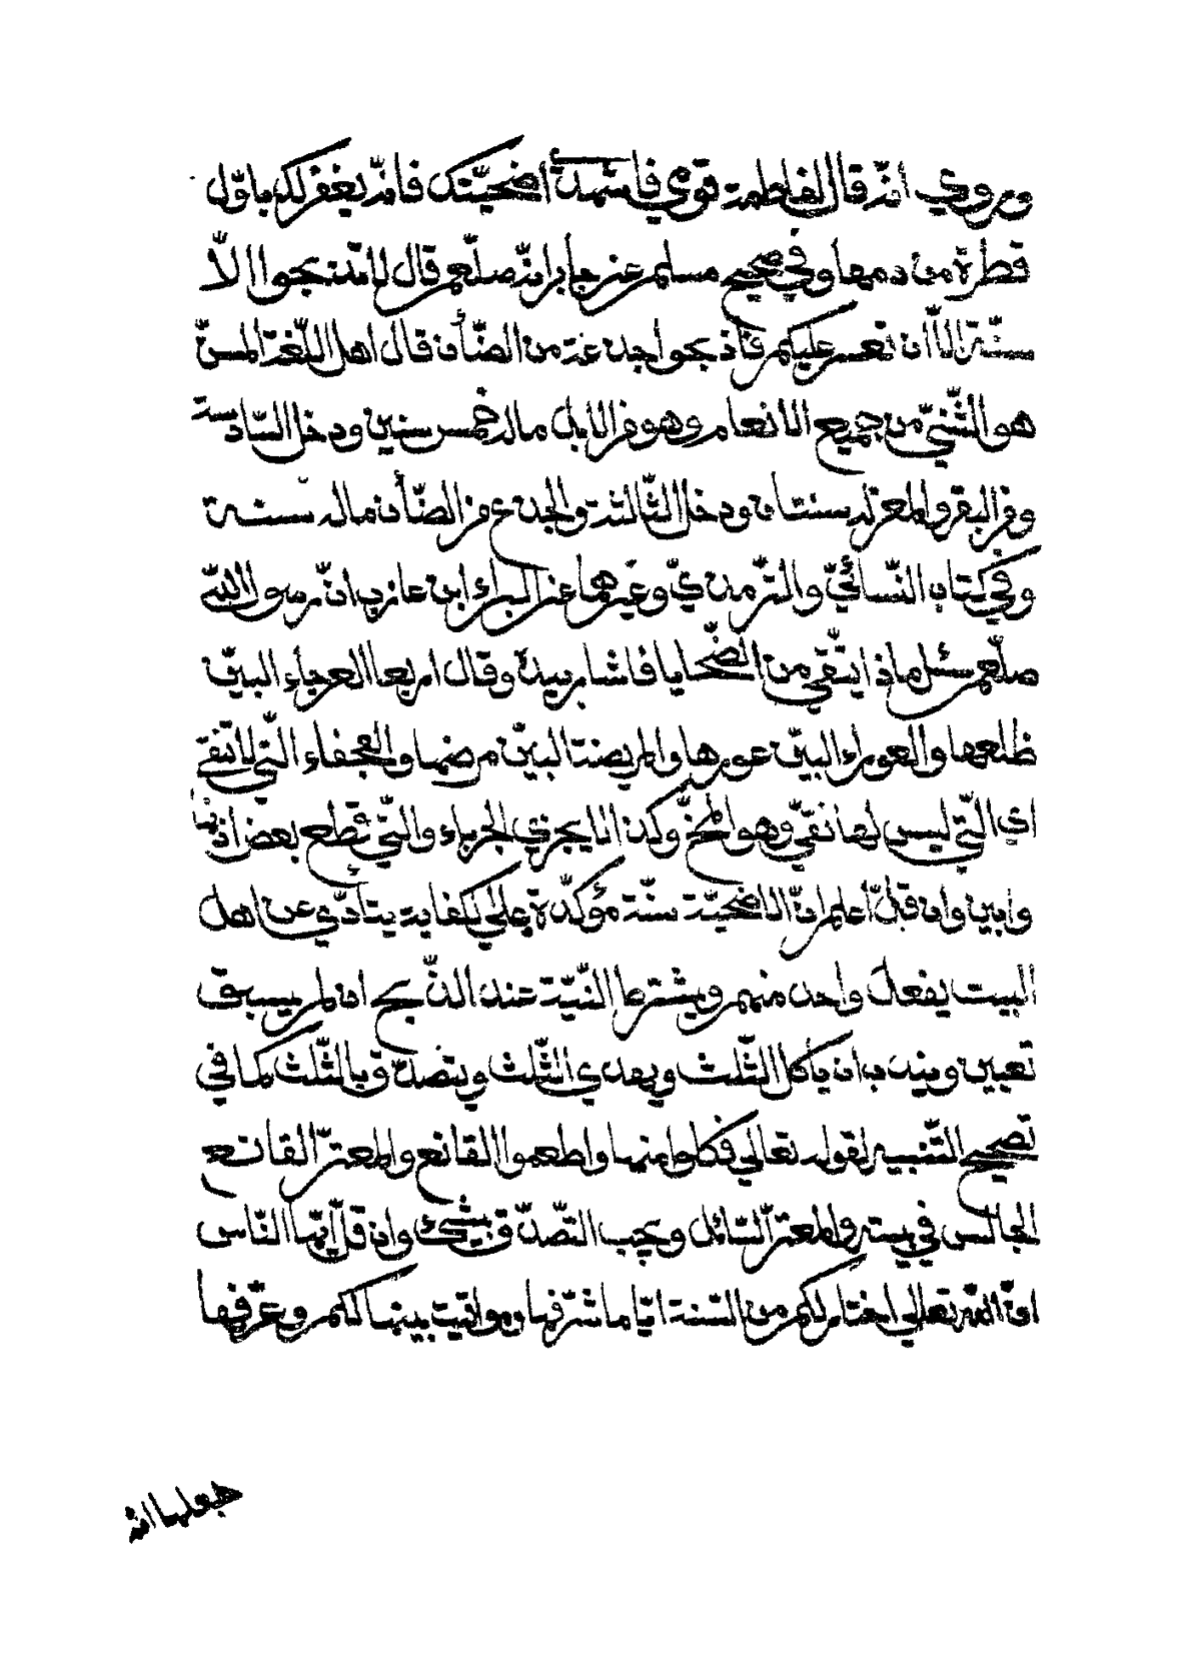 وروي انّه قال لفاطمة قومي فاشهدي أضحيّتك فانّه يغفر لك باوّل
قطرة من دمها وفي صحيح مسلم عن جابر انّه صلّعم قال لا تذبحوا الّا
مسنّة الّا أن تعسر عليكم فاذبحوا جذعة من الضّأن قال اهل اللّغة المسنّ
هو الثّنيّ من جميع الانعام وهو من الابل ماله خمس سنين ودخل السّادسة
ومن البقر والمعز له سنتان ودخل الثّالثة والجذع من الضّأن ماله سنة
وفي كتاب النّسائيّ والتّرمذيّ وغيرهما عن البراء ابن عازب انّ رسول اللّه
صلّعم سئل ماذا يتّقي من الضّحايا فاشار بيده وقال اربعا العرجاء البيّن
ظلعها والعوراء البيّن عورها والمريضة البيّن مرضها والعجفاء الّتي لا تنقي
اي الّتي ليس لها نقيّ وهو المخّ وكذا لا يجزي الجرباء والّتي قطع بعض اذنها
وابين وان قلّ أعلم انّ الاضحيّة سنّة مؤكّدة علي الكفاية يتأدّي عن اهل
البيت بفعل واحد منهم ويشترط النّيّة عند الذّبح ان لم يسبق
تعيين ويندب ان ياكل الثّلث ويهدي الثّلث ويتصدّق بالثّلث كما في
تصحيح التّنبيه لقوله تعالي فكلوا منها واطعموا القانع والمعترّ القانع
الجالس في بيته والمعترّ السّائل ويجب التّصدّق بشيء وان قلّ ايّها النّاس
انّ اللّه تعالي اختار لكم من السّنة ايّاما شرّفها ومواقيت بينها لكم وعرّفها
جعلها اللّه